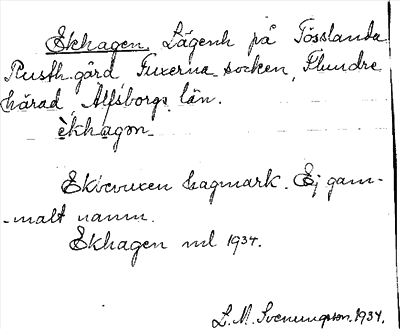 Ekhagen. Lägenh på Tösslanda
Rusth.gård Fuxerna socken, Flundre
härad, Älfsborgs län.
èkhagan
Ekbevuxen hagmark. Ej gam-
-malt namn.
Ekhagen ml 1934.
L. M. Svenungson. 1934.